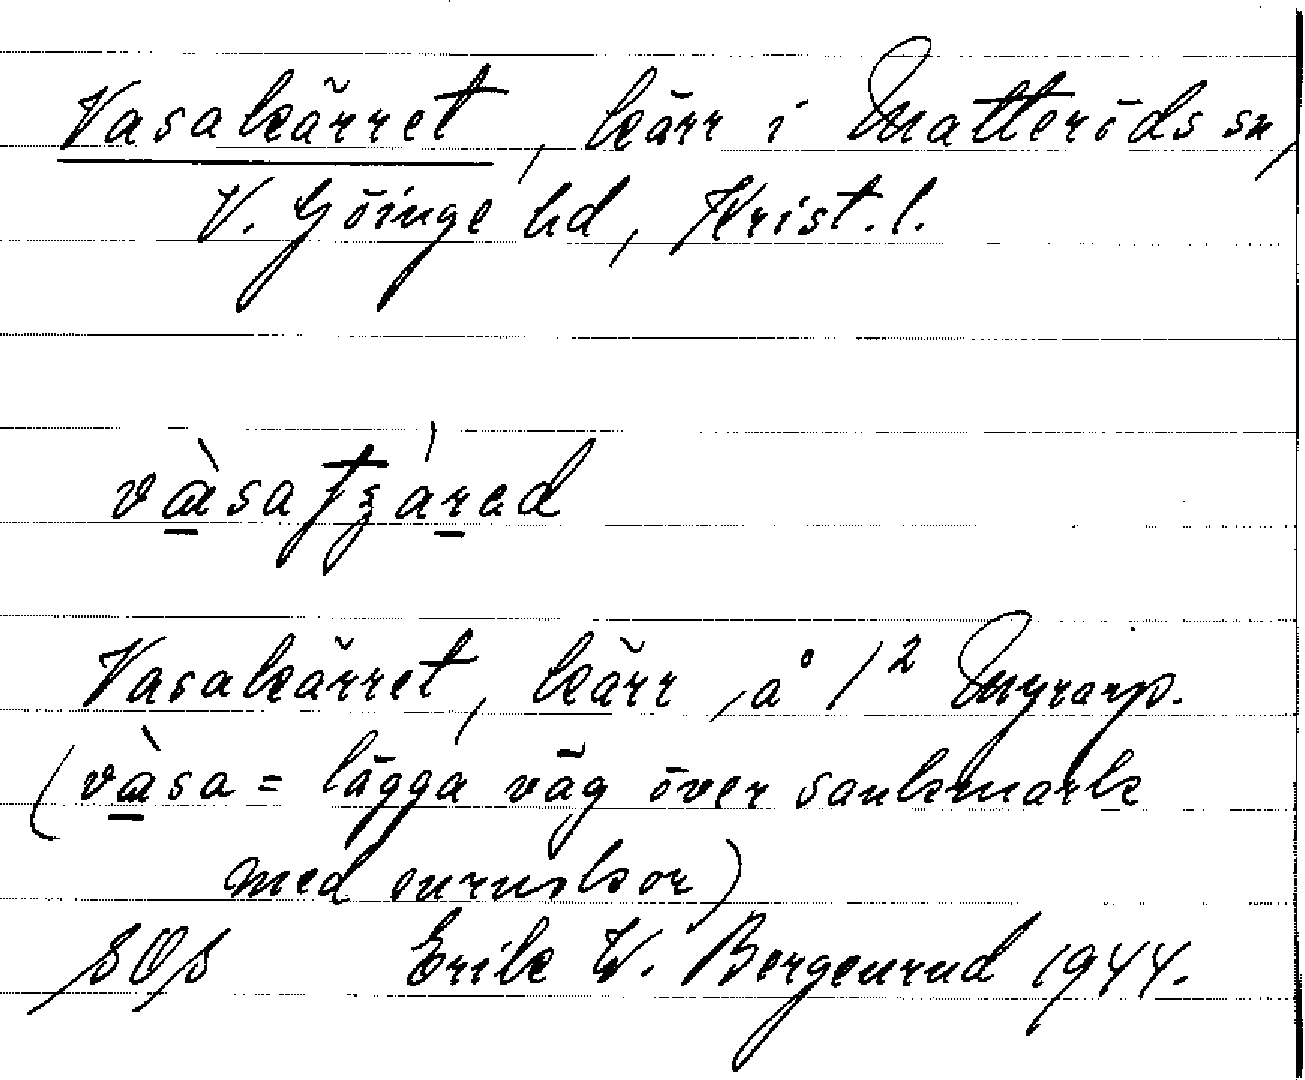 Vasakärret, kärr i Matteröds sn,
V. Göinge hd, Krist. l.
Vasakärret, kärr, å 1² Myrarp.
(vàsa = lägga väg över sankmark
med enruskor)
SOS Erik W. Bergenrud 1944.